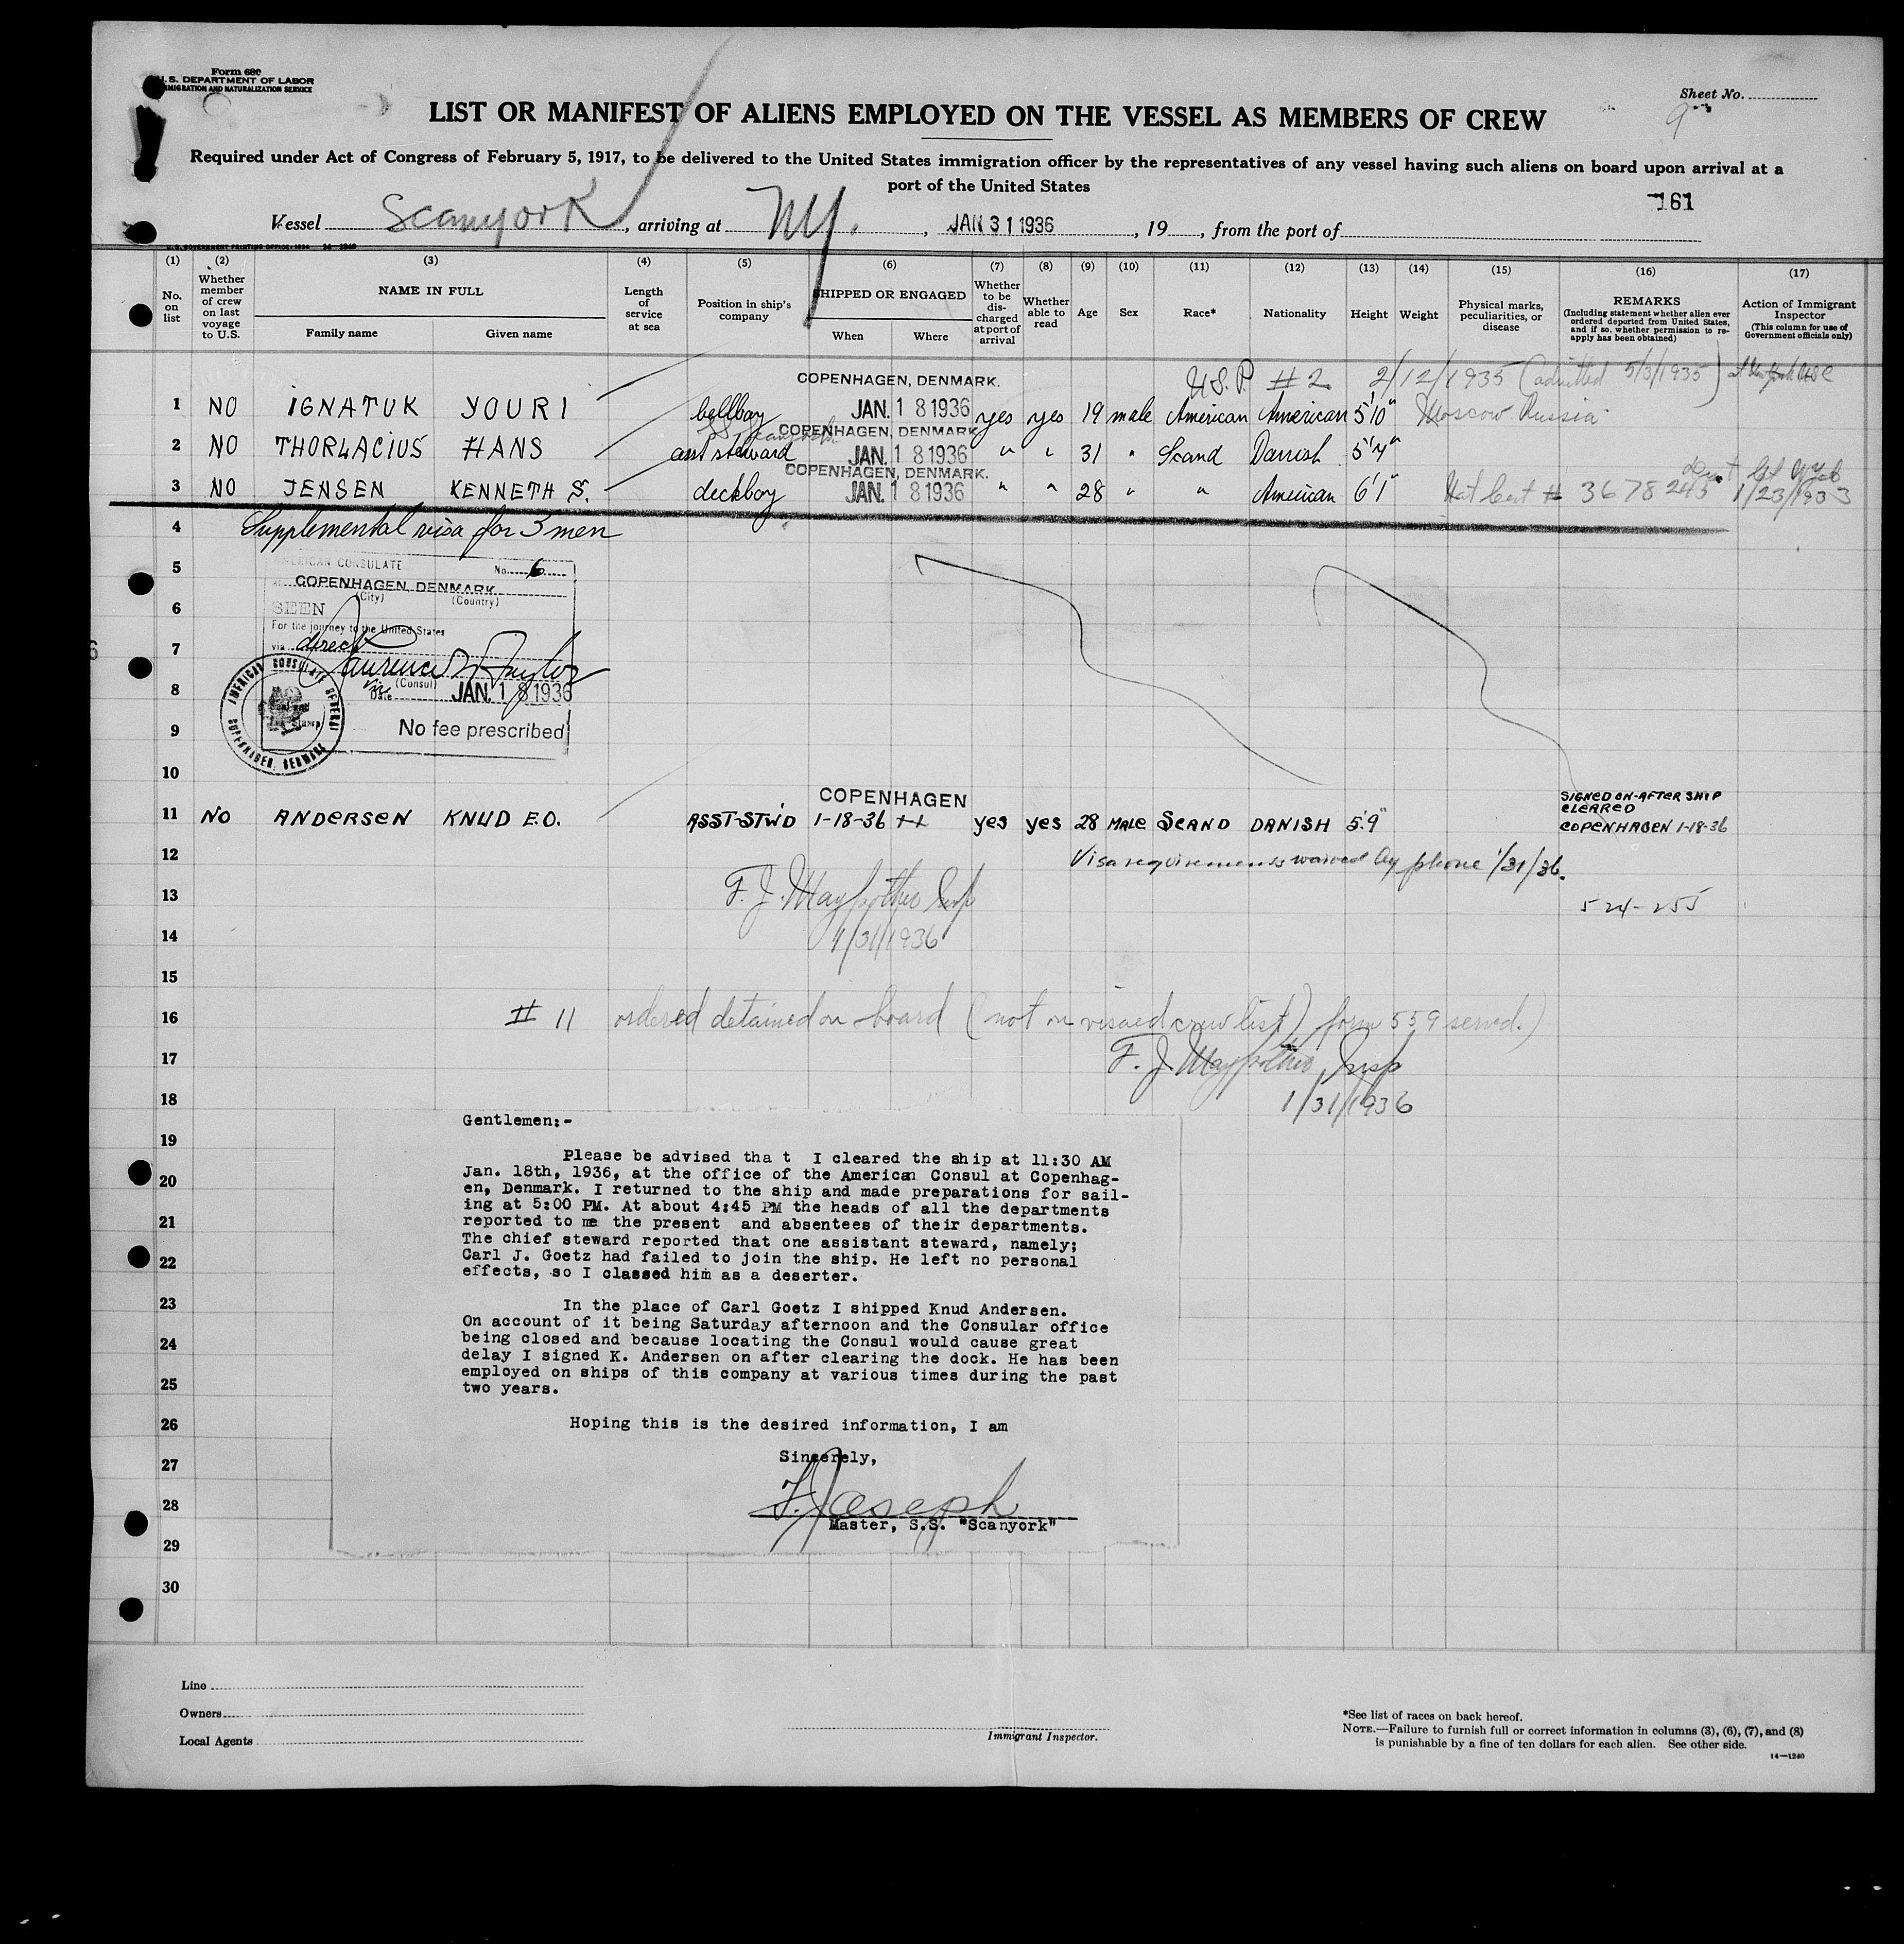 Form 680
U.S. DEPARTMENT OF LABOR
IMMIGRATION AND NATURALIZATION SERVICE
Sheet No.
9
LIST OR MANIFEST OF ALIENS EMPLOYED ON THE VESSEL AS MEMBERS OF CREW
Required under Act of Congress of February 5, 1917, to be delivered to the United States immigration officer by the representatives of any vessel having such aliens on board upon arrival at a
port of the United States
161
Vessel Scanyork, arriving at NY., JAN 31 1936, 19 , from the port of
(1) (2) (3) (4) (5) (6) (7) (8) (9) (10) (11) (12) (13) (14) (15) (16) (17)
No. on list
Whether member of crew on last voyage to U.S.
NAME IN FULL
Family name Given name
Length of service at sea
Position in ship's company
SHIPPED OR ENGAGED
When Where
Whether to be discharged at port of arrival
Whether able to read
Age
Sex
Race*
Nationality
Height
Weight
Physical marks, peculiarities, or disease
REMARKS
(Including statement whether alien ever ordered deported from United States, and if so, whether permission to re-apply has been obtained)
Action of Immigrant Inspector
(This column for use of Government officials only)
COPENHAGEN, DENMARK. U.S.P. #2 2/12/1935 (admitted 5/3/1935)
1 NO IGNATUK YOURI bellboy JAN. 18 1936 yes yes 19 male American American 5'10" Moscow Russia
COPENHAGEN, DENMARK
2 NO THORLACIUS HANS asst steward JAN. 18 1936 " " 31 " Scand Danish 5'7"
COPENHAGEN, DENMARK.
3 NO JENSEN KENNETH S. deckboy JAN. 18 1936 " " 28 " " American 6'1" Nat Cert # 3678245 1/23/1933
4 Supplemental visa for 3 men
5 AMERICAN CONSULATE No. 6
at COPENHAGEN, DENMARK
(City) (Country)
6 SEEN
For the journey to the United States
7 via direct
8 (Consul)
Date JAN. 18 1936
AMERICAN CONSULATE GENERAL COPENHAGEN, DENMARK
9 No fee prescribed
10
COPENHAGEN
SIGNED ON-AFTER SHIP
CLEARED
COPENHAGEN 1-18-36
11 NO ANDERSEN KNUD E.O. ASST-STW'D 1-18-36 yes yes 28 MALE SCAND DANISH 5'9"
12 Visa requirements waived by phone 1/31/36.
13 524-255
14 1/31/1936
15
16 # 11 ordered detained on board (not on visaed crew list) form 559 served.)
17
18 1/31/1936
Gentlemen:-
19
Please be advised tha t I cleared the ship at 11:30 AM
Jan. 18th, 1936, at the office of the American Consul at Copenhag-
20
en, Denmark. I returned to the ship and made preparations for sail-
ing at 5:00 PM. At about 4:45 PM the heads of all the departments
21
reported to me the present and absentees of their departments.
The chief steward reported that one assistant steward, namely;
22
Carl J. Goetz had failed to join the ship. He left no personal
effects, so I classed him as a deserter.
23
In the place of Carl Goetz I shipped Knud Andersen.
On account of it being Saturday afternoon and the Consular office
24
being closed and because locating the Consul would cause great
delay I signed K. Andersen on after clearing the dock. He has been
25
employed on ships of this company at various times during the past
two years.
26
Hoping this is the desired information, I am
27
Sincerely,
28
F. Joseph
Master, S.S. "Scanyork"
29
30
Line
Owners
Local Agents
Immigrant Inspector.
*See list of races on back hereof.
NOTE.—Failure to furnish full or correct information in columns (3), (6), (7), and (8)
is punishable by a fine of ten dollars for each alien. See other side.
14—1240